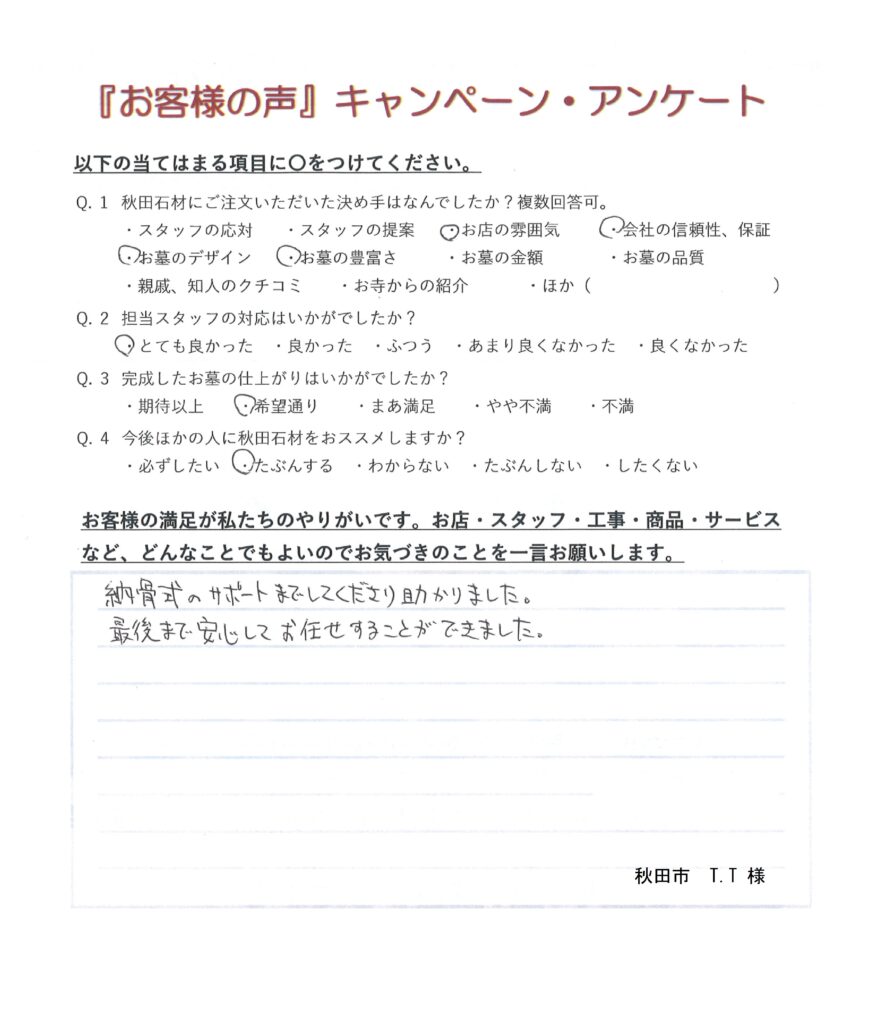 『お客様の声』キャンペーン・アンケート
以下の当てはまる項目に〇をつけてください。
Q. 1 秋田石材にご注文いただいた決め手はなんでしたか？複数回答可。
・スタッフの応対 ・スタッフの提案 ・お店の雰囲気 ・会社の信頼性、保証
・お墓のデザイン ・お墓の豊富さ ・お墓の金額 ・お墓の品質
・親戚、知人のクチコミ ・お寺からの紹介 ・ほか（ ）
Q. 2 担当スタッフの対応はいかがでしたか？
・とても良かった ・良かった ・ふつう ・あまり良くなかった ・良くなかった
Q. 3 完成したお墓の仕上がりはいかがでしたか？
・期待以上 ・希望通り ・まあ満足 ・やや不満 ・不満
Q. 4 今後ほかの人に秋田石材をおススメしますか？
・必ずしたい ・たぶんする ・わからない ・たぶんしない ・したくない
お客様の満足が私たちのやりがいです。お店・スタッフ・工事・商品・サービス
など、どんなことでもよいのでお気づきのことを一言お願いします。
納骨式のサポートまでしてくださり助かりました。
最後まで安心してお任せすることができました。
秋田市 T.T 様